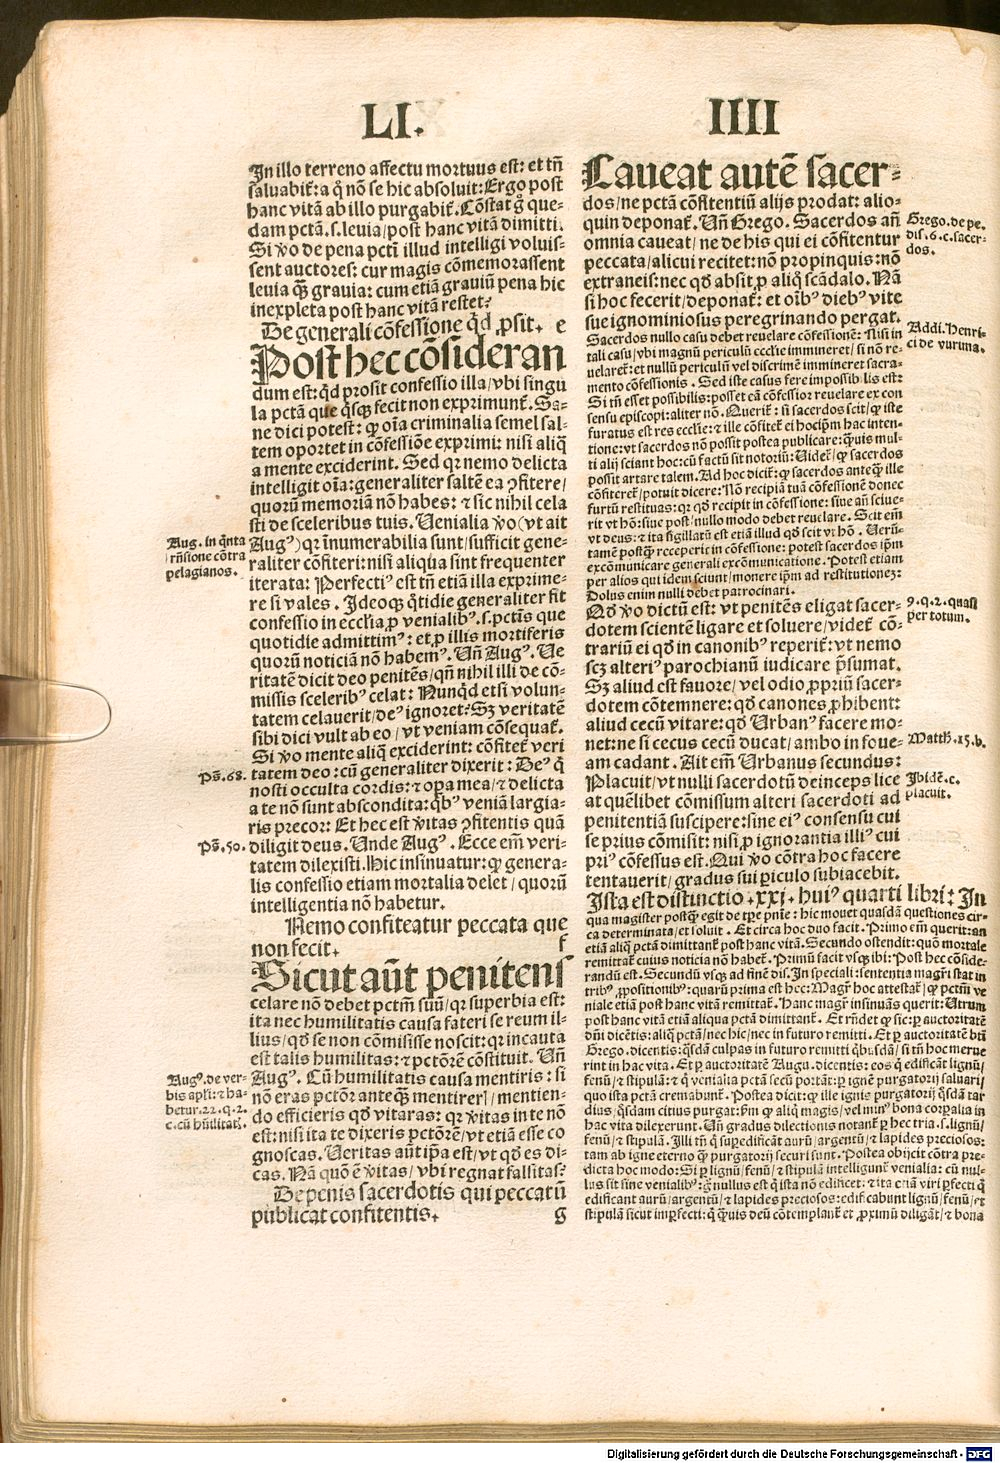 LI.
IIII
In illo terreno affectu mortuus est: et tn̄
saluabit᷑: a q̊ nō se hic absoluit: Ergo post
hanc vitā ab illo purgabit᷑. Cōstat g̊ que-
dam pctā. s. leuia/post hanc vitā dimitti.
Si ꝟo de pena pcti illud intelligi voluis-
sent auctores: cur magis cōmemorassent
leuia qꝫ̄ grauia: cum etiā grauiū pena hic
inexpleta post hanc vitā restet?
De generali cōfessione qͥd ꝓsit. e
Post hec cōsideran
dum est: qͥd prosit confessio illa/vbi singu
la pctā que qͥsqꝫ fecit non exprimunt᷑. Sa-
ne dici potest: ꝙ oīa criminalia semel sal-
tem oportet in cōfessiōe exprimi: nisi aliq̄
a mente exciderint. Sed qꝛ nemo delicta
intelligit oīa: generaliter saltē ea ꝯfitere/
quorū memoriā nō habes: ⁊ sic nihil cela
sti de sceleribus tuis. Uenialia ꝟo (vt ait
Augꝰ) qꝛ īnumerabilia sunt/sufficit gene-
raliter cōfiteri: nisi aliqua sint frequenter
iterata: Perfectiꝰ est tn̄ etiā illa exprime-
re si vales. Ideoqꝫ q̊tidie generaliter fit
confessio in ecclīa ꝓ venialibꝰ. s. pctīs que
quotidie admittimꝰ: et ꝓ illis mortiferis
quorū noticiā nō habemꝰ. Un̄ Augꝰ. Ue
ritatē dicit deo penitēs/qn̄ nihil illi de cō-
missis sceleribꝰ celat: Nunqͥd etsi volun-
tatem celauerit/deꝰ ignoret? Sꝫ veritatē
sibi dici vult ab eo/vt veniam cōsequat᷑.
Si ꝟo mente aliq̄ exciderint: cōfitet᷑ veri
tatem deo: cū generaliter dixerit: Deꝰ q̄
nosti occulta cordis: ⁊ oꝑa mea/⁊ delicta
a te nō sunt abscondita: qͥbꝰ veniā largia-
ris precor: Et hec est ꝟitas ꝯfitentis quā
diligit deus. Unde Augꝰ. Ecce em̄ veri-
tatem dilexisti. Hic insinuatur: ꝙ genera-
lis confessio etiam mortalia delet/quorū
intelligentia nō habetur.
Nemo confiteatur peccata que
non fecit. f
Sicut aūt penitens
celare nō debet pctm̄ suū/qꝛ superbia est:
ita nec humilitatis causa fateri se reum il-
lius/qd̄ se non cōmisisse noscit: qꝛ incauta
est talis humilitas: ⁊ pctōrē cōstituit. Un̄
Augꝰ. Cū humilitatis causa mentiris: si
nō eras pctōr anteqꝫ̄ mentireris/mentien-
do efficieris qd̄ vitaras: qꝛ ꝟitas in te nō
est: nisi ita te dixeris pctōrē/vt etiā esse co
gnoscas. Ueritas aūt ip̄a est/vt qd̄ es di-
cas. Nā quō ē ꝟitas/vbi regnat fallitas?
De penis sacerdotis qui peccatū
publicat confitentis. g
Aug. in qͥnta
rn̄sione cōtra
pelagianos.
Ps̄. 68.
Ps̄. 50.
Augꝰ. de ver-
bis apl̄i: ⁊ ha-
betur. 22. q. 2.
c. cū hūilitatꝭ.
Caueat autē sacer-
dos/ne pctā cōfitentiū alijs prodat: alio-
quin deponat᷑. Un̄ Grego. Sacerdos an̄
omnia caueat/ne de his qui ei cōfitentur
peccata/alicui recitet: nō propinquis: nō
extraneis: nec qd̄ absit ꝓ aliq̊ scādalo. Nā
si hoc fecerit/deponat᷑: et oībꝰ diebꝰ vite
sue ignominiosus peregrinando pergat.
Sacerdos nullo casu debet reuelare cōfessionē: Nisi in
tali casu/vbi magnū periculū ecclīe immineret/si nō re-
uelaret᷑: et nullū periculū vel discrimē immineret sacra-
mento cōfessionis. Sed iste casus fere impossibilis est:
Si tn̄ esset possibilis: posset eā cōfessor reuelare ex con
sensu episcopi: aliter nō. Querit᷑: si sacerdos scit/ꝙ iste
furatus est res ecclīe: ⁊ ille cōfitet᷑ ei hocip̄m hac inten-
tione: vt sacerdos nō possit postea publicare: qͣuis mul-
ti alij sciant hoc: cū factū sit notoriū: Uidet᷑/ꝙ sacerdos
possit artare talem. Ad hoc dicit᷑: ꝙ sacerdos anteqꝫ̄ ille
cōfiteret᷑/potuit dicere: Nō recipiā tuā cōfessionē donec
furtū restituas: qꝛ qd̄ recipit in cōfessione: siue an̄ sciue-
rit vt hō: siue post/nullo modo debet reuelare. Scit em̄
vt deus: ⁊ ita sigillatū est etiā illud qd̄ scit vt hō. Uerū-
tamē postqꝫ̄ receperit in cōfessione: potest sacerdos ip̄m
excōmunicare generali excōmunicatione. Potest etiam
per alios qui idem sciunt/monere ip̄m ad restitutionez:
Dolus enim nulli debet patrocinari.
Qd̄ ꝟo dictū est: vt penitēs eligat sacer-
dotem scientē ligare et soluere/videt᷑ cō-
trariū ei qd̄ in canonibꝰ reperit᷑: vt nemo
scꝫ alteriꝰ parochianū iudicare p̄sumat.
Sꝫ aliud est fauore/vel odio ꝓpriū sacer-
dotem cōtemnere: qd̄ canones ꝓhibent:
aliud cecū vitare: qd̄ Urbanꝰ facere mo-
net: ne si cecus cecū ducat/ambo in foue-
am cadant. Ait em̄ Urbanus secundus:
Placuit/vt nulli sacerdotū deinceps lice
at quēlibet cōmissum alteri sacerdoti ad
penitentiā suscipere: sine eiꝰ consensu cui
se prius cōmisit: nisi ꝓ ignorantia illiꝰ cui
priꝰ cōfessus est. Qui ꝟo cōtra hoc facere
tentauerit/gradus sui ꝑiculo subiacebit.
Ista est distinctio .xxi. huiꝰ quarti libri: In
qua magister postqꝫ̄ egit de tꝑe pn̄ie: hic mouet quasdā questiones cir-
ca determinata/et soluit. Et circa hoc duo facit. Primo em̄ querit: an
etiā aliq̄ pctā dimittant᷑ post hanc vitā. Secundo ostendit: quō mortale
remittat᷑ cuius noticia nō habet᷑. Primū facit vsqꝫ ibi: Post hec cōside-
randū est. Secundū vsqꝫ ad finē dis. In speciali: sententia magr̄i stat in
tribꝰ ꝓpositionibꝰ: quarū prima est hec: Magr̄ hoc attestat᷑/ꝙ pctm̄ ve
niale etiā post hanc vitā remittat᷑. Hanc magr̄ insinuās querit: Utrum
post hanc vitā etiā aliqua pctā dimittant᷑. Et rn̄det ꝙ sic: ꝑ auctoritatē
dn̄i dicētis: aliq̄ pctā/nec hic/nec in futuro remitti. Et ꝑ auctoritatē bt̄i
Grego. dicentis: qͣsdā culpas in futuro remitti qͥbusdā/si tn̄ hoc merue
rint in hac vita. Et ꝑ auctoritatē Augu. dicentis: eos q̄ edificāt lignū/
fenū/⁊ stipulā: ⁊ q̄ venialia pctā secū portāt: ꝑ ignē purgatorij saluari/
quo ista pctā cremabunt᷑. Postea dicit: ꝙ ille ignis purgatorij qͣsdā tar
dius/qͣsdam citius purgat: ẜm ꝙ aliq̄ magis/vel minꝰ bona corꝑalia in
hac vita dilexerunt. Un̄ gradus dilectionis notant᷑ ꝑ hec tria. s. lignū/
fenū/⁊ stipulā. Illi tn̄ q̄ suꝑedificāt aurū/argentū/⁊ lapides preciosos:
tam ab igne eterno qꝫ̄ purgatorij securi sunt. Postea obijcit cōtra pre-
dicta hoc modo: Si ꝑ lignū/fenū/⁊ stipulā intelligunt᷑ venialia: cū nul-
lus sit sine venialibꝰ: g̊ nullus est q̄ ista nō edificet: ⁊ ita etiā viri ꝑfecti q̄
edificant aurū/argentū/⁊ lapides preciosos: edificabunt lignū/fenū/et
stipulā sicut imꝑfecti: q̄ qͣuis deū cōtemplant᷑ et ꝓximū diligāt/⁊ bona
Grego. de pe.
dis. 6. c. sacer-
dos.
Addi. Henri-
ci de vurima.
9. q. 2. quasi
per totum.
Matth. 15. b.
Ibidē. c.
placuit.
Digitalisierung gefördert durch die Deutsche Forschungsgemeinschaft - DFG